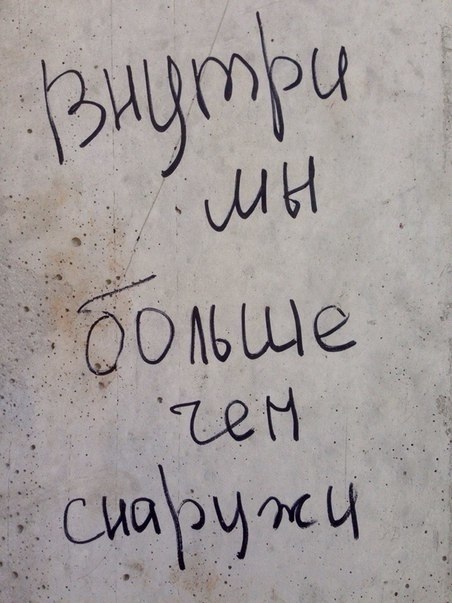 внутри
мы
больше
чем
снаружи